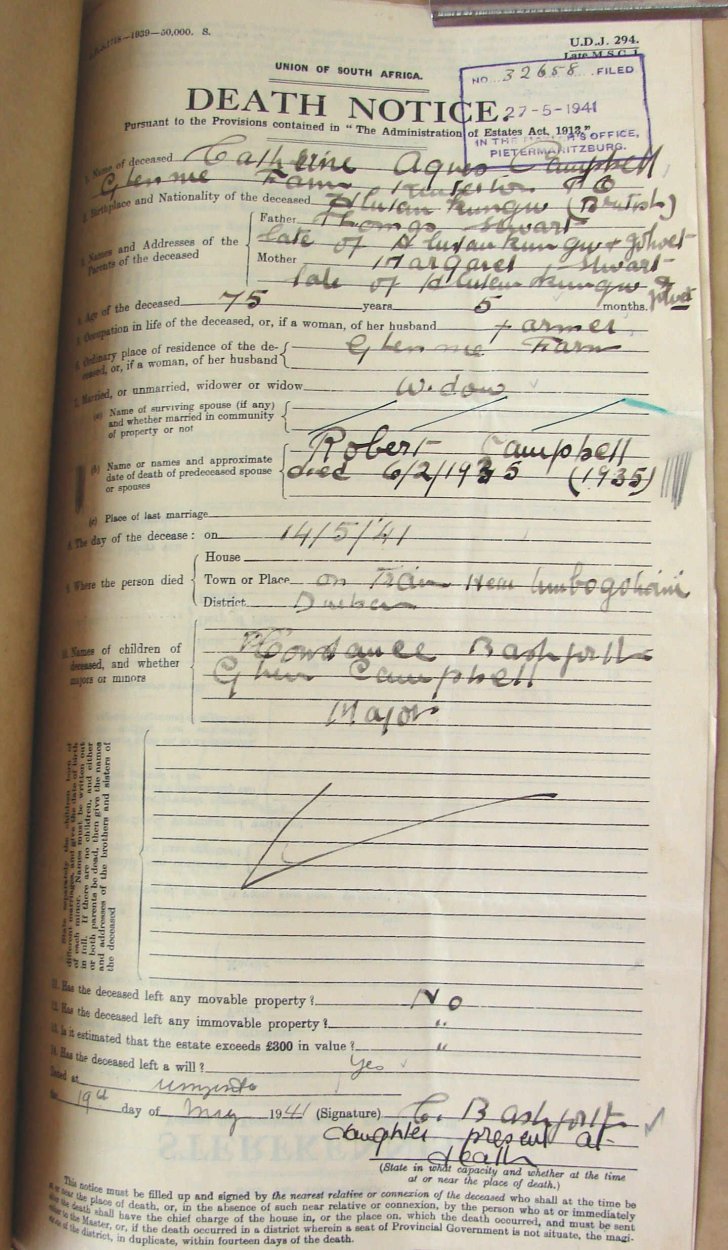 1939—50,000. S.
U.D.J. 294.
Late M.S.C. 1
UNION OF SOUTH AFRICA.
NO. 32658 FILED
DEATH NOTICE.
27-5-1941
Pursuant to the Provisions contained in "The Administration of Estates Act, 1913."
IN THE MASTER'S OFFICE,
PIETERMARITZBURG.
1. Name of deceased Catherine Agnes Campbell
Farm P O
2. Birthplace and Nationality of the deceased (British)
3. Names and Addresses of the Parents of the deceased
Father Thomas Stuart
late of
Mother Margaret Stuart
late of
4. Age of the deceased 75 years 5 months.
5. Occupation in life of the deceased, or, if a woman, of her husband Farmer
6. Ordinary place of residence of the deceased, or, if a woman, of her husband Farm
7. Married, or unmarried, widower or widow Widow
(a) Name of surviving spouse (if any) and whether married in community of property or not
(b) Name or names and approximate date of death of predeceased spouse or spouses
Robert Campbell
died 6/2/1935 (1935)
(c) Place of last marriage
8. The day of the decease: on 14/5/41
9. Where the person died
House
Town or Place on Train Near
District Durban
10. Names of children of deceased, and whether majors or minors
Constance Bashforth
Campbell
Major
State separately the children born of
different marriages, and give the date of birth
of each minor. Names must be written out
in full. If there are no children, and either
or both parents be dead, then give the names
and addresses of the brothers and sisters of
the deceased
11. Has the deceased left any movable property? No
12. Has the deceased left any immovable property? "
13. Is it estimated that the estate exceeds £300 in value? "
14. Has the deceased left a will? Yes
Dated at Umzinto
19th day of May 1941 (Signature) C. Bashforth
daughter present at
death
(State in what capacity and whether at the time
at or near the place of death.)
This notice must be filled up and signed by the nearest relative or connexion of the deceased who shall at the time be
at or near the place of death, or, in the absence of such near relative or connexion, by the person who at or immediately
after the death shall have the chief charge of the house in, or the place on, which the death occurred, and must be sent
either to the Master, or, if the death occurred in a district wherein a seat of Provincial Government is not situate, the magi-
strate of the district, in duplicate, within fourteen days of the death.